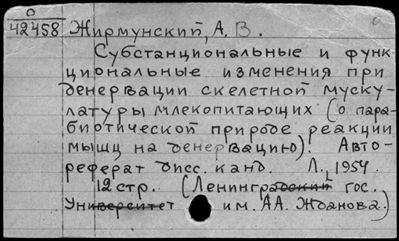 О
42458 Жирмунский, А. В.
Субстанциональные и функ-
циональные изменения при
денервации скелетной муску-
латуры млекопитающих (о пара-
биотической природе реакции
мышц на денервацию). Авто-
реферат дисс. канд. Л., 1954.
12 стр. (Ленинградский гос.
Университет им. А.А. Жданова.)